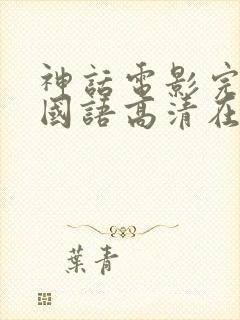 神話電影完
國語高清在
葉青